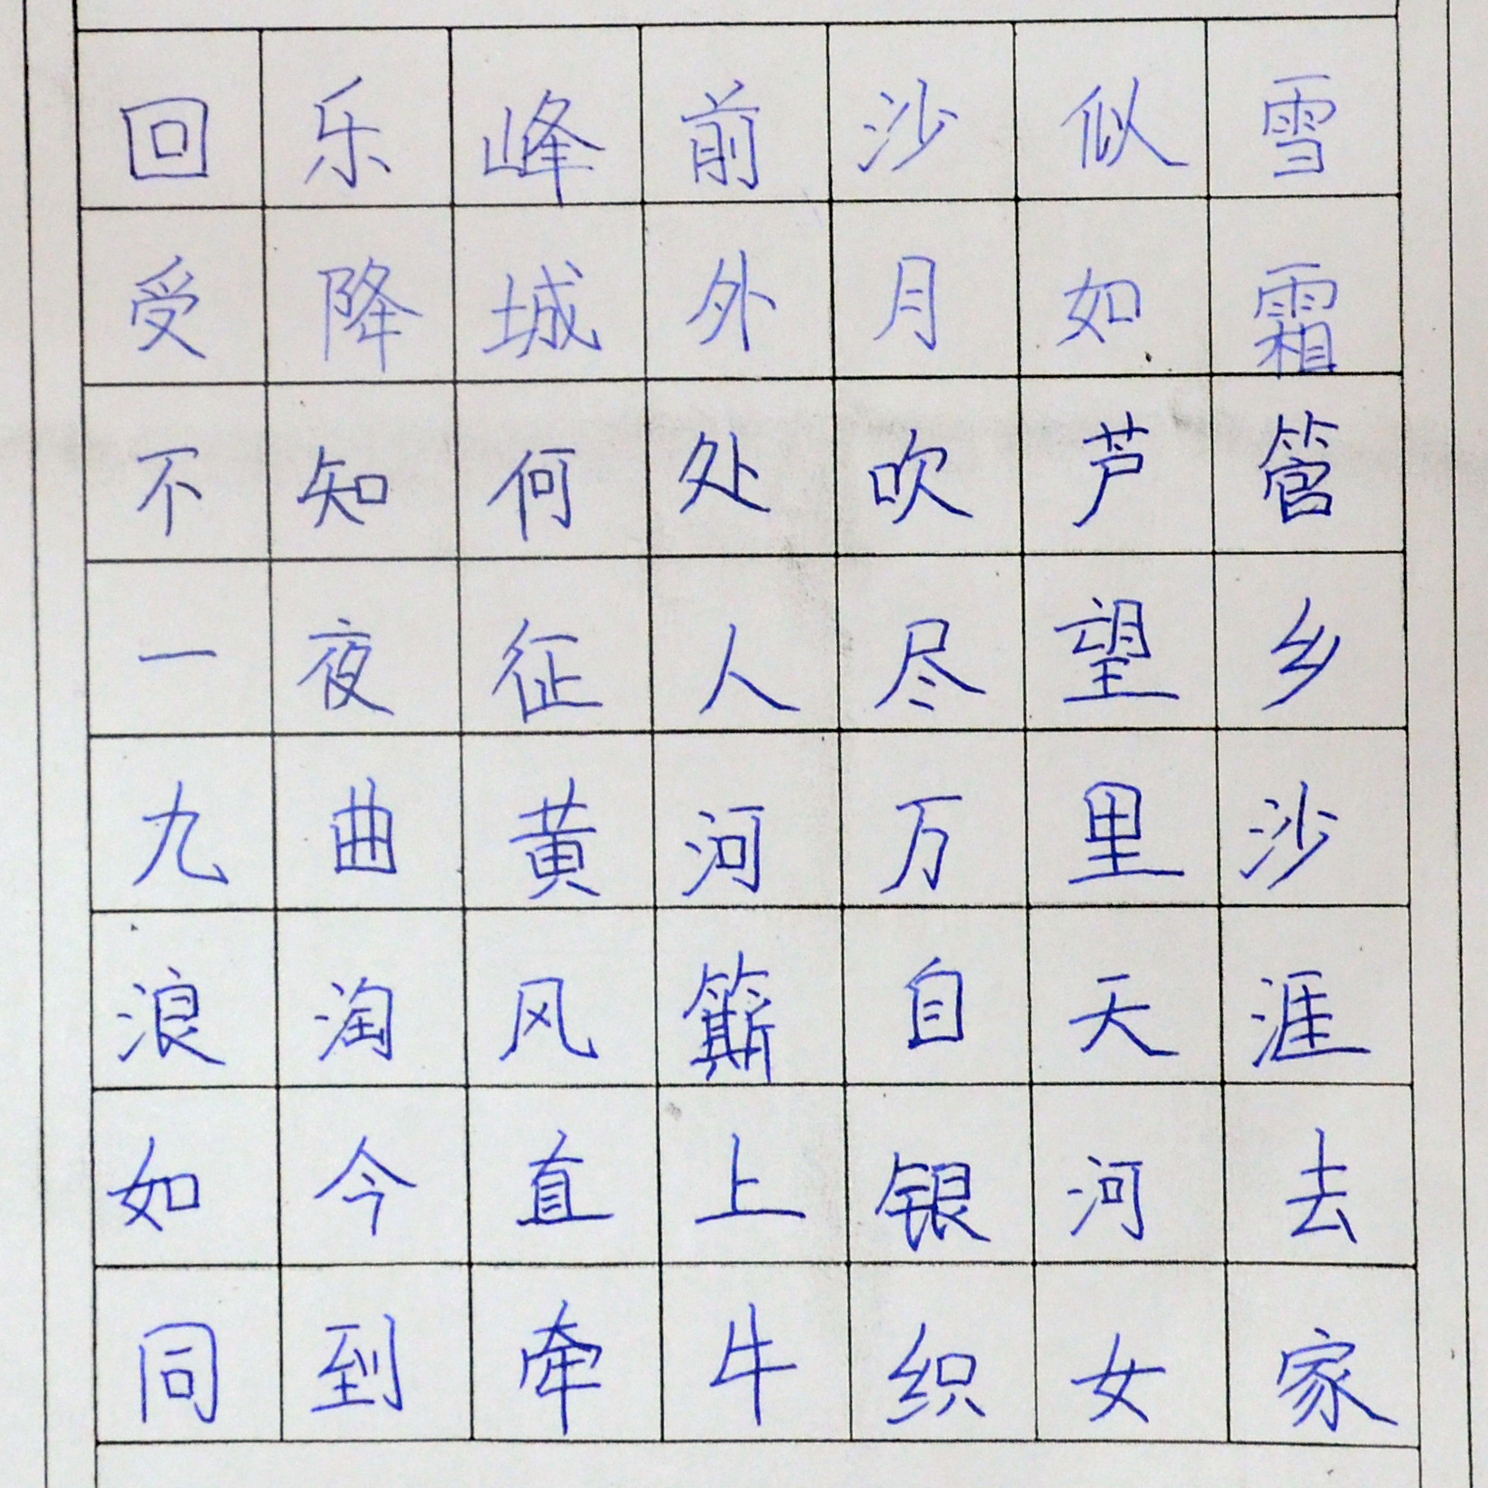 回乐峰前沙似雪
受降城外月如霜
不知何处吹芦管
一夜征人尽望乡
九曲黄河万里沙
浪淘风簛自天涯
如今直上银河去
同到牵牛织女家